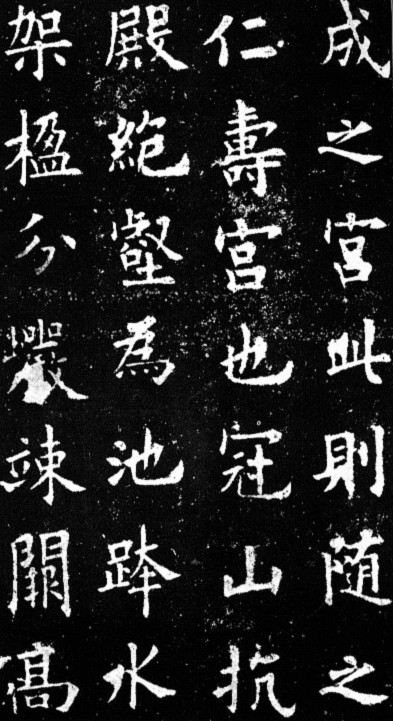 成之宮此則隨之
仁壽宮也冠山抗
殿絶壑為池跨水
架楹分巖竦闕高